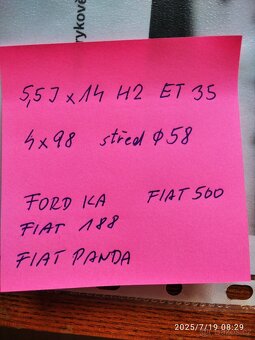 rykově
5,5J x 14 H2 ET 35
4x98 střed Φ58
FORD KA FIAT 500
FIAT 188
FIAT PANDA
2025/7/19 08:29